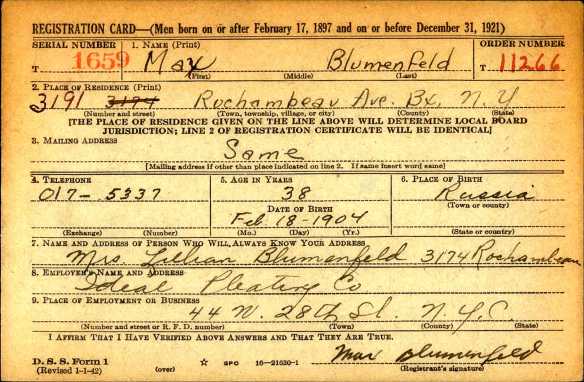 REGISTRATION CARD—(Men born on or after February 17, 1897 and on or before December 31, 1921)
SERIAL NUMBER 1. NAME (Print) ORDER NUMBER
T 1659 Max Blumenfeld T 11266
(First) (Middle) (Last)
2. PLACE OF RESIDENCE (Print)
3191 3174 Rochambeau Ave. Bx, N.Y
(Number and street) (Town, township, village, or city) (County) (State)
[THE PLACE OF RESIDENCE GIVEN ON THE LINE ABOVE WILL DETERMINE LOCAL BOARD
JURISDICTION; LINE 2 OF REGISTRATION CERTIFICATE WILL BE IDENTICAL]
3. MAILING ADDRESS
Same
[Mailing address if other than place indicated on line 2. If same insert word same]
4. TELEPHONE 5. AGE IN YEARS 6. PLACE OF BIRTH
017-5337 38 Russia
DATE OF BIRTH (Town or county)
Feb. 18-1904
(Exchange) (Number) (Mo.) (Day) (Yr.) (State or country)
7. NAME AND ADDRESS OF PERSON WHO WILL ALWAYS KNOW YOUR ADDRESS
Mrs. Lillian Blumenfeld 3174 Rochambeau
8. EMPLOYER'S NAME AND ADDRESS
Ideal Pleating Co
9. PLACE OF EMPLOYMENT OR BUSINESS
44 W. 28th St. N.Y.C.
(Number and street or R. F. D. number) (Town) (County) (State)
I AFFIRM THAT I HAVE VERIFIED ABOVE ANSWERS AND THAT THEY ARE TRUE.
D. S. S. Form 1
(Revised 1-1-42) (over) ☆ GPO 16—21630-1 Max Blumenfeld
(Registrant's signature)